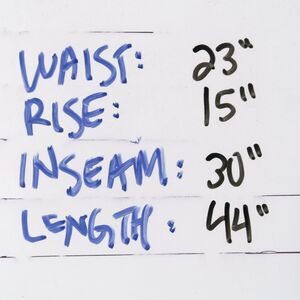 WAIST: 23"
RISE: 15"
INSEAM: 30"
LENGTH: 44"